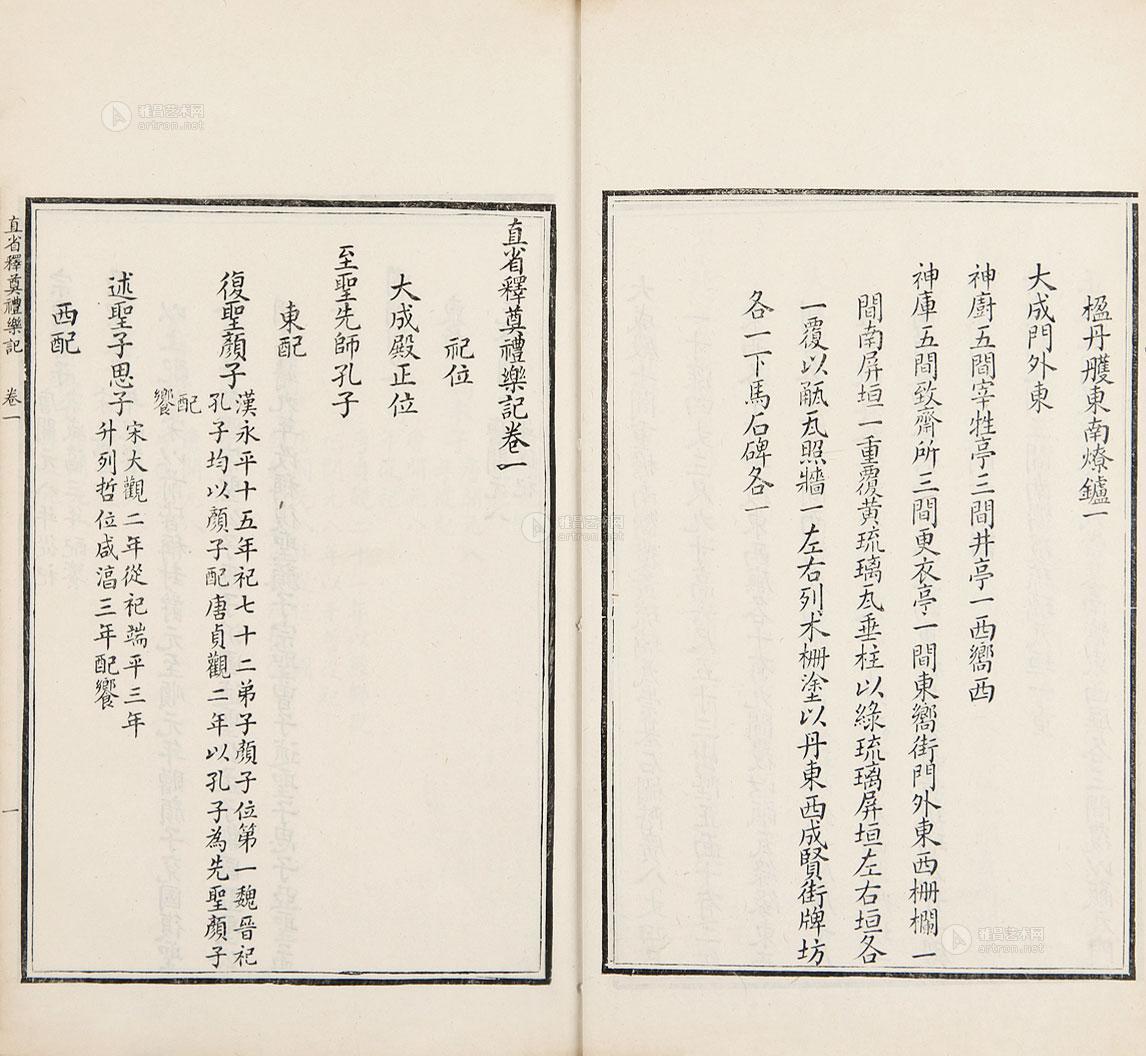 楹丹雘東南燎鑪一
大成門外東
神廚五間宰牲亭三間井亭一西嚮西
神庫五間致齋所三間更衣亭一間東嚮街門外東西柵欄一
間南屏垣一重覆黃琉璃瓦垂柱以綠琉璃屏垣左右垣各
一覆以瓪瓦照牆一左右列木柵塗以丹東西成賢街牌坊
各一下馬石碑各一
直省釋奠禮樂記卷一
祀位
大成殿正位
至聖先師孔子
東配
復聖顏子
漢永平十五年祀七十二弟子顏子位第一魏晉祀
孔子均以顏子配唐貞觀二年以孔子為先聖顏子
配
饗
述聖子思子
宋大觀二年從祀端平三年
升列哲位咸湻三年配饗
西配
直省釋奠禮樂記 卷一 一
雅昌艺术网
artron.net
雅昌艺术网
artron.net
雅昌艺术网
artron.net